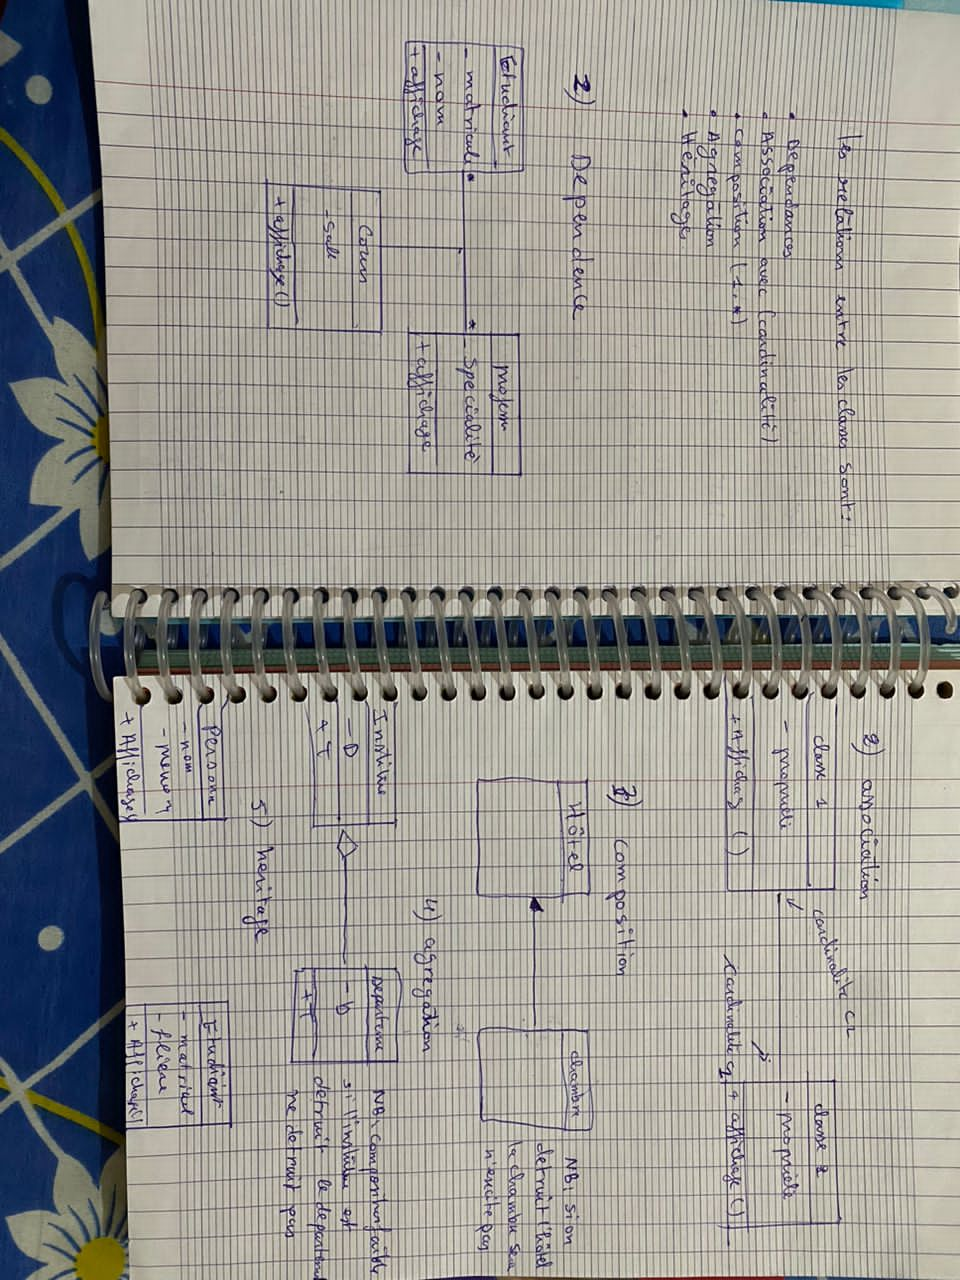 Les relations entre les classes sont:
• Dependances
• Association avec (cardinalité)
• composition (1.*)
• Agregation
• Héritage.
2) Dependence
Etudiant
- matricule
- nom
+ affichage
*
*
- Specialité
+ affichage
Cours
- Salle
+ affichage()
2) association
classe 1
- proprieté
()
cardinalité c2
cardinalité
classe 2
- proprieté
+ affichage ()
composition
Hôtel
chambre
NB: si on
detruit l'hôtel
la chambre sera
n'excite pas
4) agregation
- D
+ T
Departeme
- D
+ T
NB: composition faible
si l'institue est
detruit le departeme
ne detruit pas
5) heritage
Persone
- nom
- prenom
+ Affichages
Etudiant
- matricul
- filiere
+ Affichage()